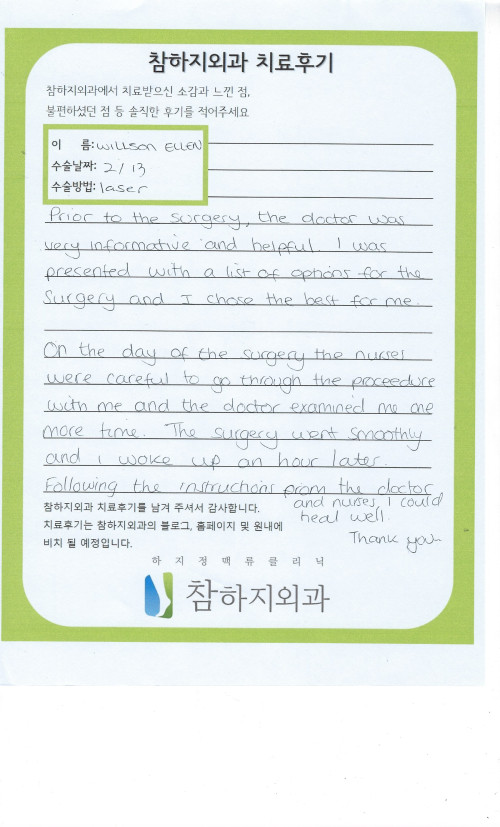 참하지외과 치료후기
참하지외과에서 치료받으신 소감과 느낀 점,
불편하셨던 점 등 솔직한 후기를 적어주세요
이 름: Willson ELLEN
수술날짜: 2/13
수술방법: laser
Prior to the surgery, the doctor was
very informative and helpful. I was
presented with a list of options for the
Surgery and I chose the best for me.
On the day of the surgery the nurses
were careful to go through the proceedure
with me and the doctor examined me one
more time. The surgery went smoothly
and i woke up an hour later.
Following the instructions from the doctor
and nurses, I could
heal well.
Thank you
참하지외과 치료후기를 남겨 주셔서 감사합니다.
치료후기는 참하지외과의 블로그, 홈페이지 및 원내에
비치 될 예정입니다.
하지정맥류클리닉
참하지외과